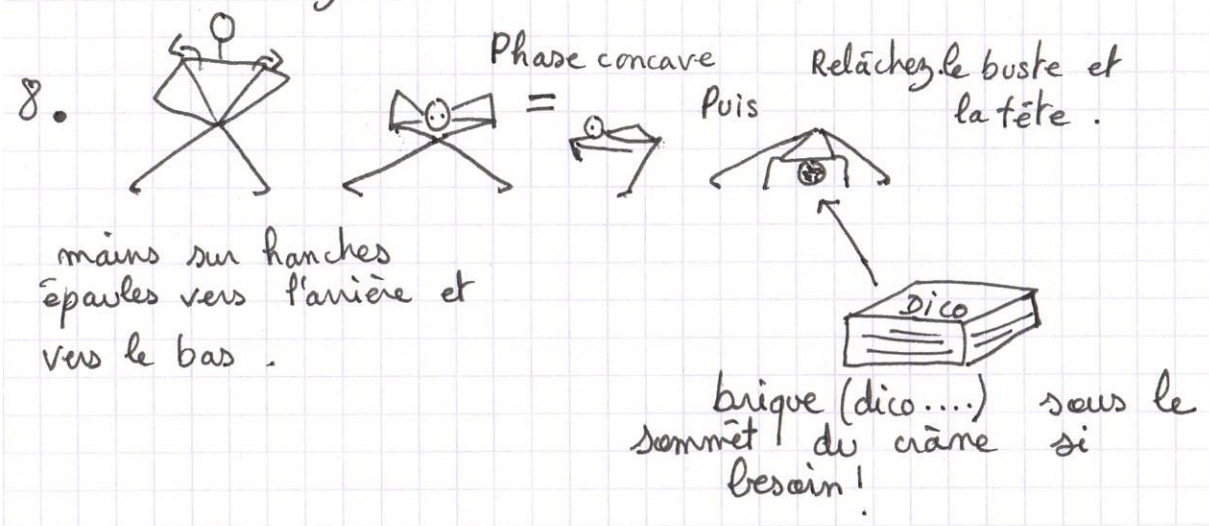 8.
Phase concave
=
Puis
Relâchez le buste et
la tête.
mains sur hanches
épaules vers l'arrière et
vers le bas.
Dico
brique (dico....) sous le
sommêt du crâne si
besoin!